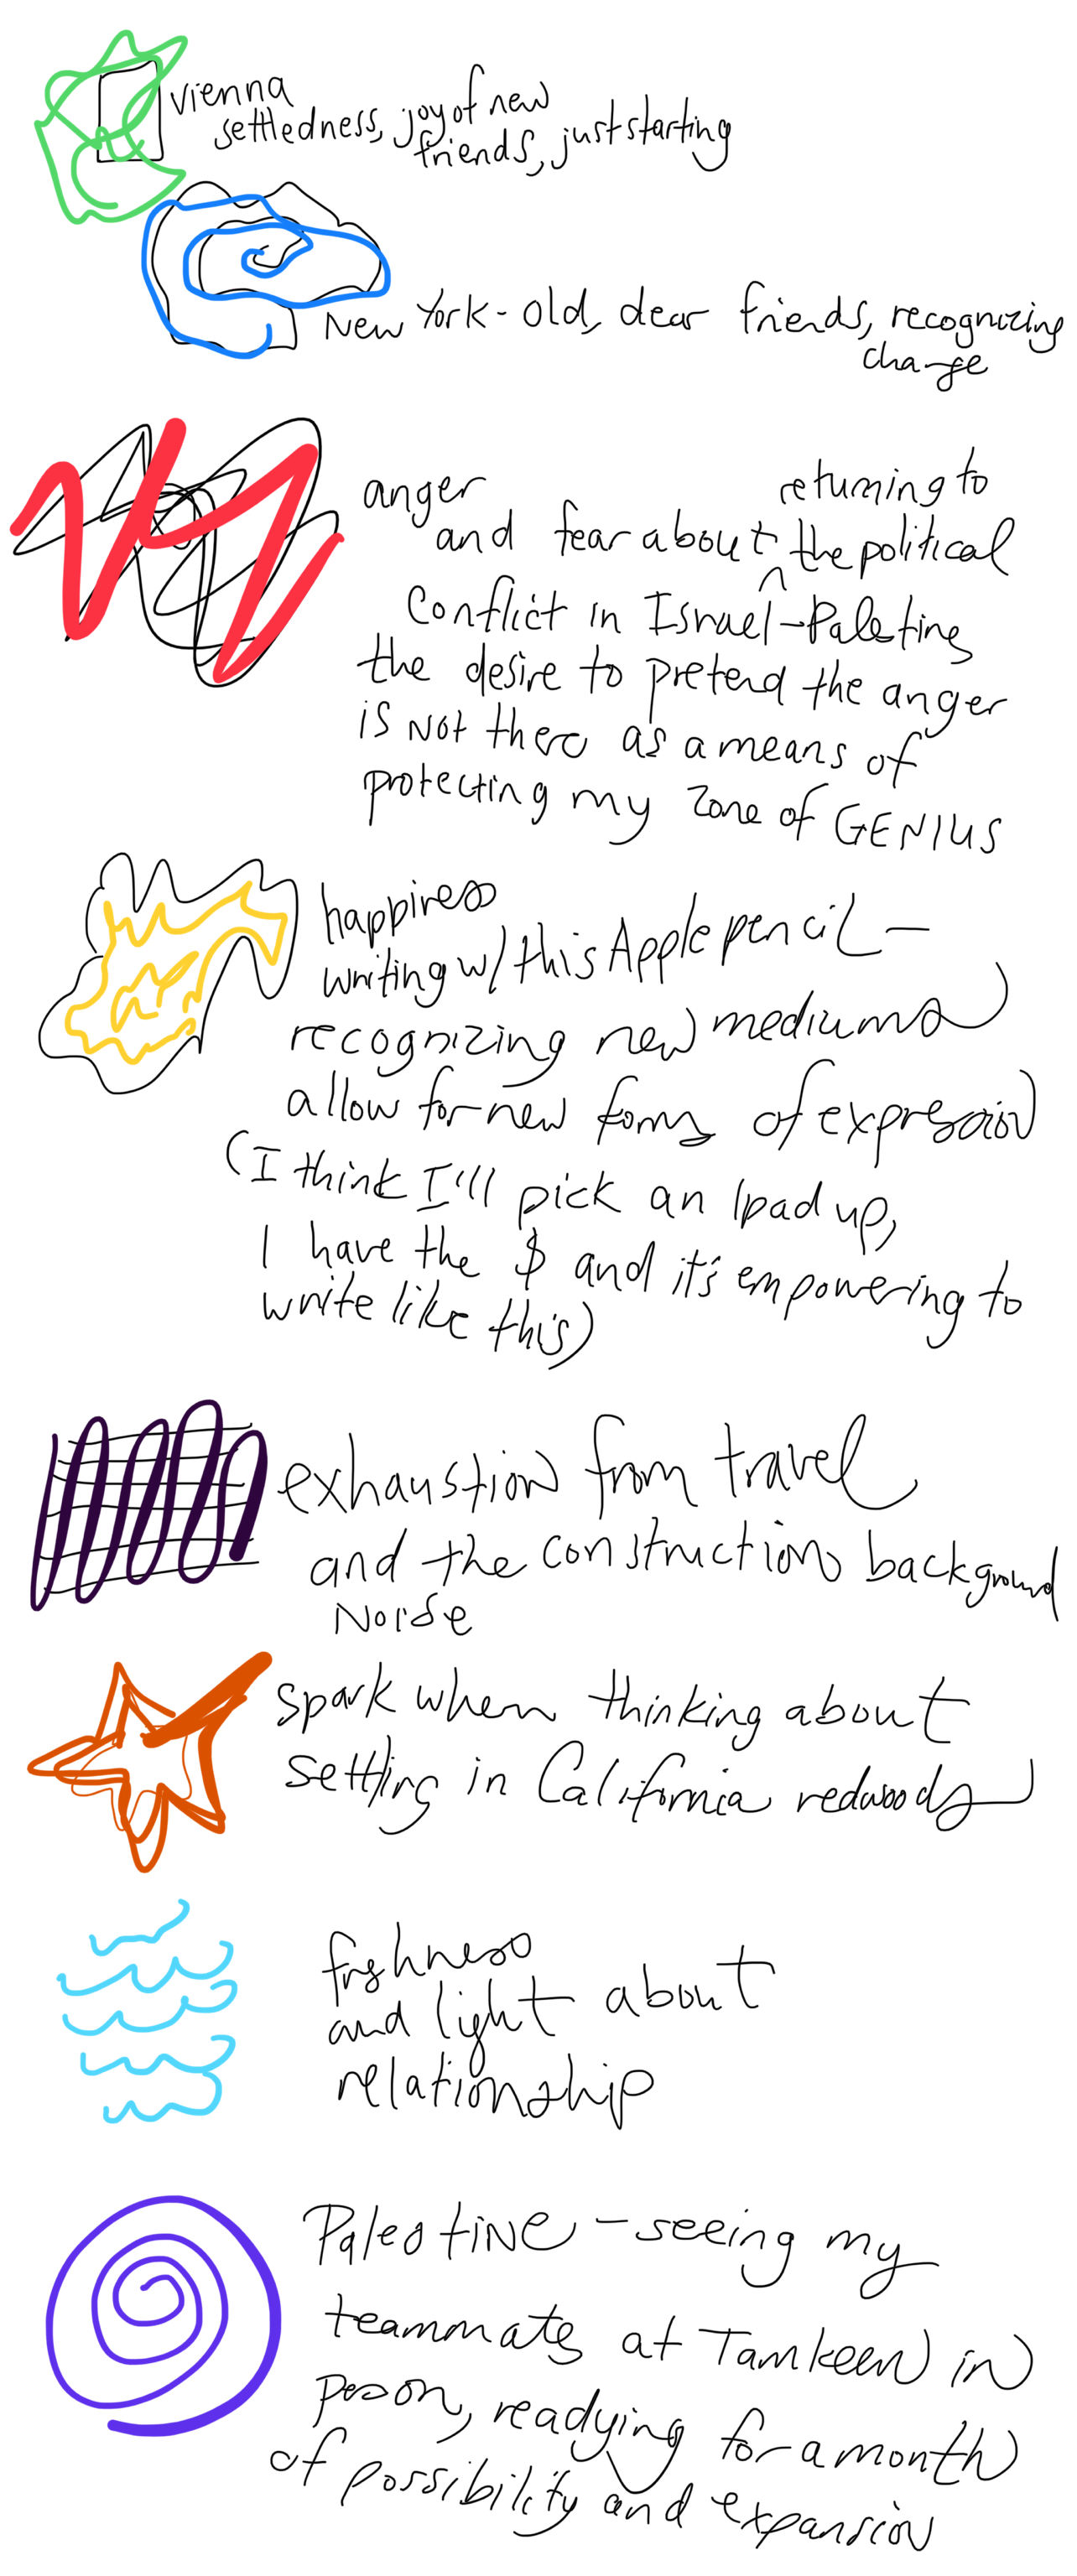 vienna
settledness, joy of new
friends, just starting
New York - old, dear friends, recognizing
change
anger returning to
and fear about ^ the political
Conflict in Israel-Paletine
the desire to pretend the anger
is Not there as a means of
protecting my zone of GENIUS
happiness
writing w/ this Apple pencil —
recognizing new mediums
allow for new forms of expression
(I think I'll pick an Ipad up,
I have the $ and it's empowering to
write like this)
exhaustion from travel
and the construction background
Noise
spark when thinking about
settling in California redwoods
freshness
and light about
relationship
Palestine - seeing my
teammates at Tamkeen in
person, readying for a month
of possibility and expansion